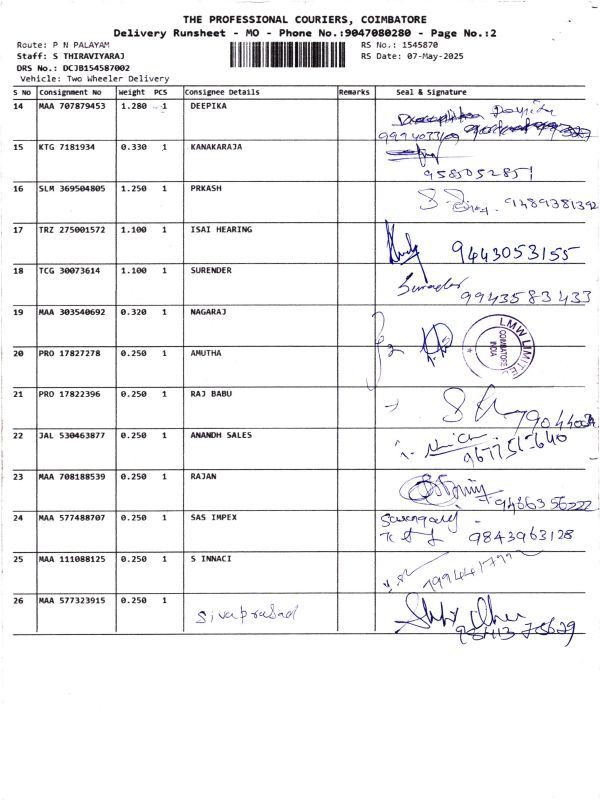 THE PROFESSIONAL COURIERS, COIMBATORE
Delivery Runsheet - MO - Phone No.:9047080280 - Page No.:2
Route: P N PALAYAM RS No.: 1545870
Staff: S THIRAVIYARAJ RS Date: 07-May-2025
DRS No.: DCJB154587002
Vehicle: Two Wheeler Delivery
S No Consignment No Weight PCS Consignee Details Remarks Seal & Signature
14 MAA 707879453 1.280 1 DEEPIKA
15 KTG 7181934 0.330 1 KANAKARAJA
9585052851
16 SLM 369504805 1.250 1 PRKASH
9489381392
17 TRZ 275001572 1.100 1 ISAI HEARING
9443053155
18 TCG 30073614 1.100 1 SURENDER
9943583433
19 MAA 303540692 0.320 1 NAGARAJ
LMW LIMITED
COIMBATORE
INDIA
20 PRO 17827278 0.250 1 AMUTHA
21 PRO 17822396 0.250 1 RAJ BABU
22 JAL 530463877 0.250 1 ANANDH SALES
23 MAA 708188539 0.250 1 RAJAN
9486356222
24 MAA 577488707 0.250 1 SAS IMPEX
9843963128
25 MAA 111088125 0.250 1 S INNACI
26 MAA 577323915 0.250 1 Sivaprasad